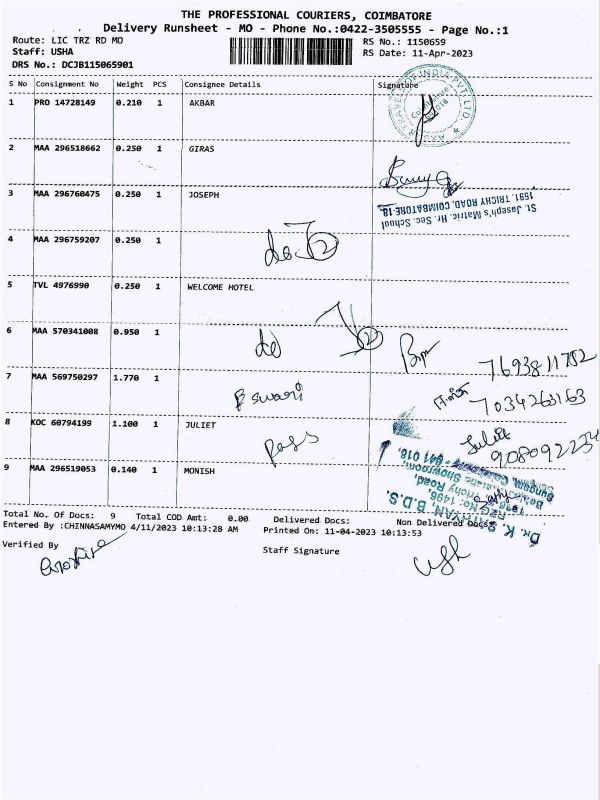 THE PROFESSIONAL COURIERS, COIMBATORE
Delivery Runsheet - MO - Phone No.:0422-3505555 - Page No.:1
Route: LIC TRZ RD MO
RS No.: 1150659
Staff: USHA
RS Date: 11-Apr-2023
DRS No.: DCJB115065901
S No Consignment No Weight PCS Consignee Details Signature
1 PRO 14728149 0.210 1 AKBAR
TRAVELS OF INDIA PVT. LTD.
Coimbatore
2 MAA 296518662 0.250 1 GIRAS
3 MAA 296760475 0.250 1 JOSEPH
St. Joseph's Matric. Hr. Sec. School
1591, TRICHY ROAD, COIMBATORE-18.
4 MAA 296759207 0.250 1
do 2
5 TVL 4976990 0.250 1 WELCOME HOTEL
6 MAA 570341008 0.950 1
do 2
7693811752
7 MAA 569750297 1.770 1
Eswari
7034263163
8 KOC 60794199 1.100 1 JULIET
Pass
Juliet
9 MAA 296519053 0.140 1 MONISH
B.D.S.
Total No. Of Docs: 9 Total COD Amt: 0.00 Delivered Docs: Non Delivered Docs:
Entered By :CHINNASAMYMO 4/11/2023 10:13:28 AM Printed On: 11-04-2023 10:13:53
Verified By
Staff Signature